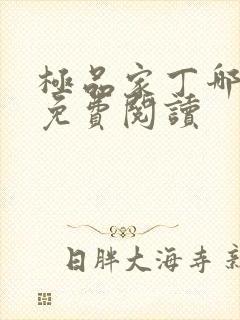 極品家丁哪
免費閱讀
日胖大海寺新